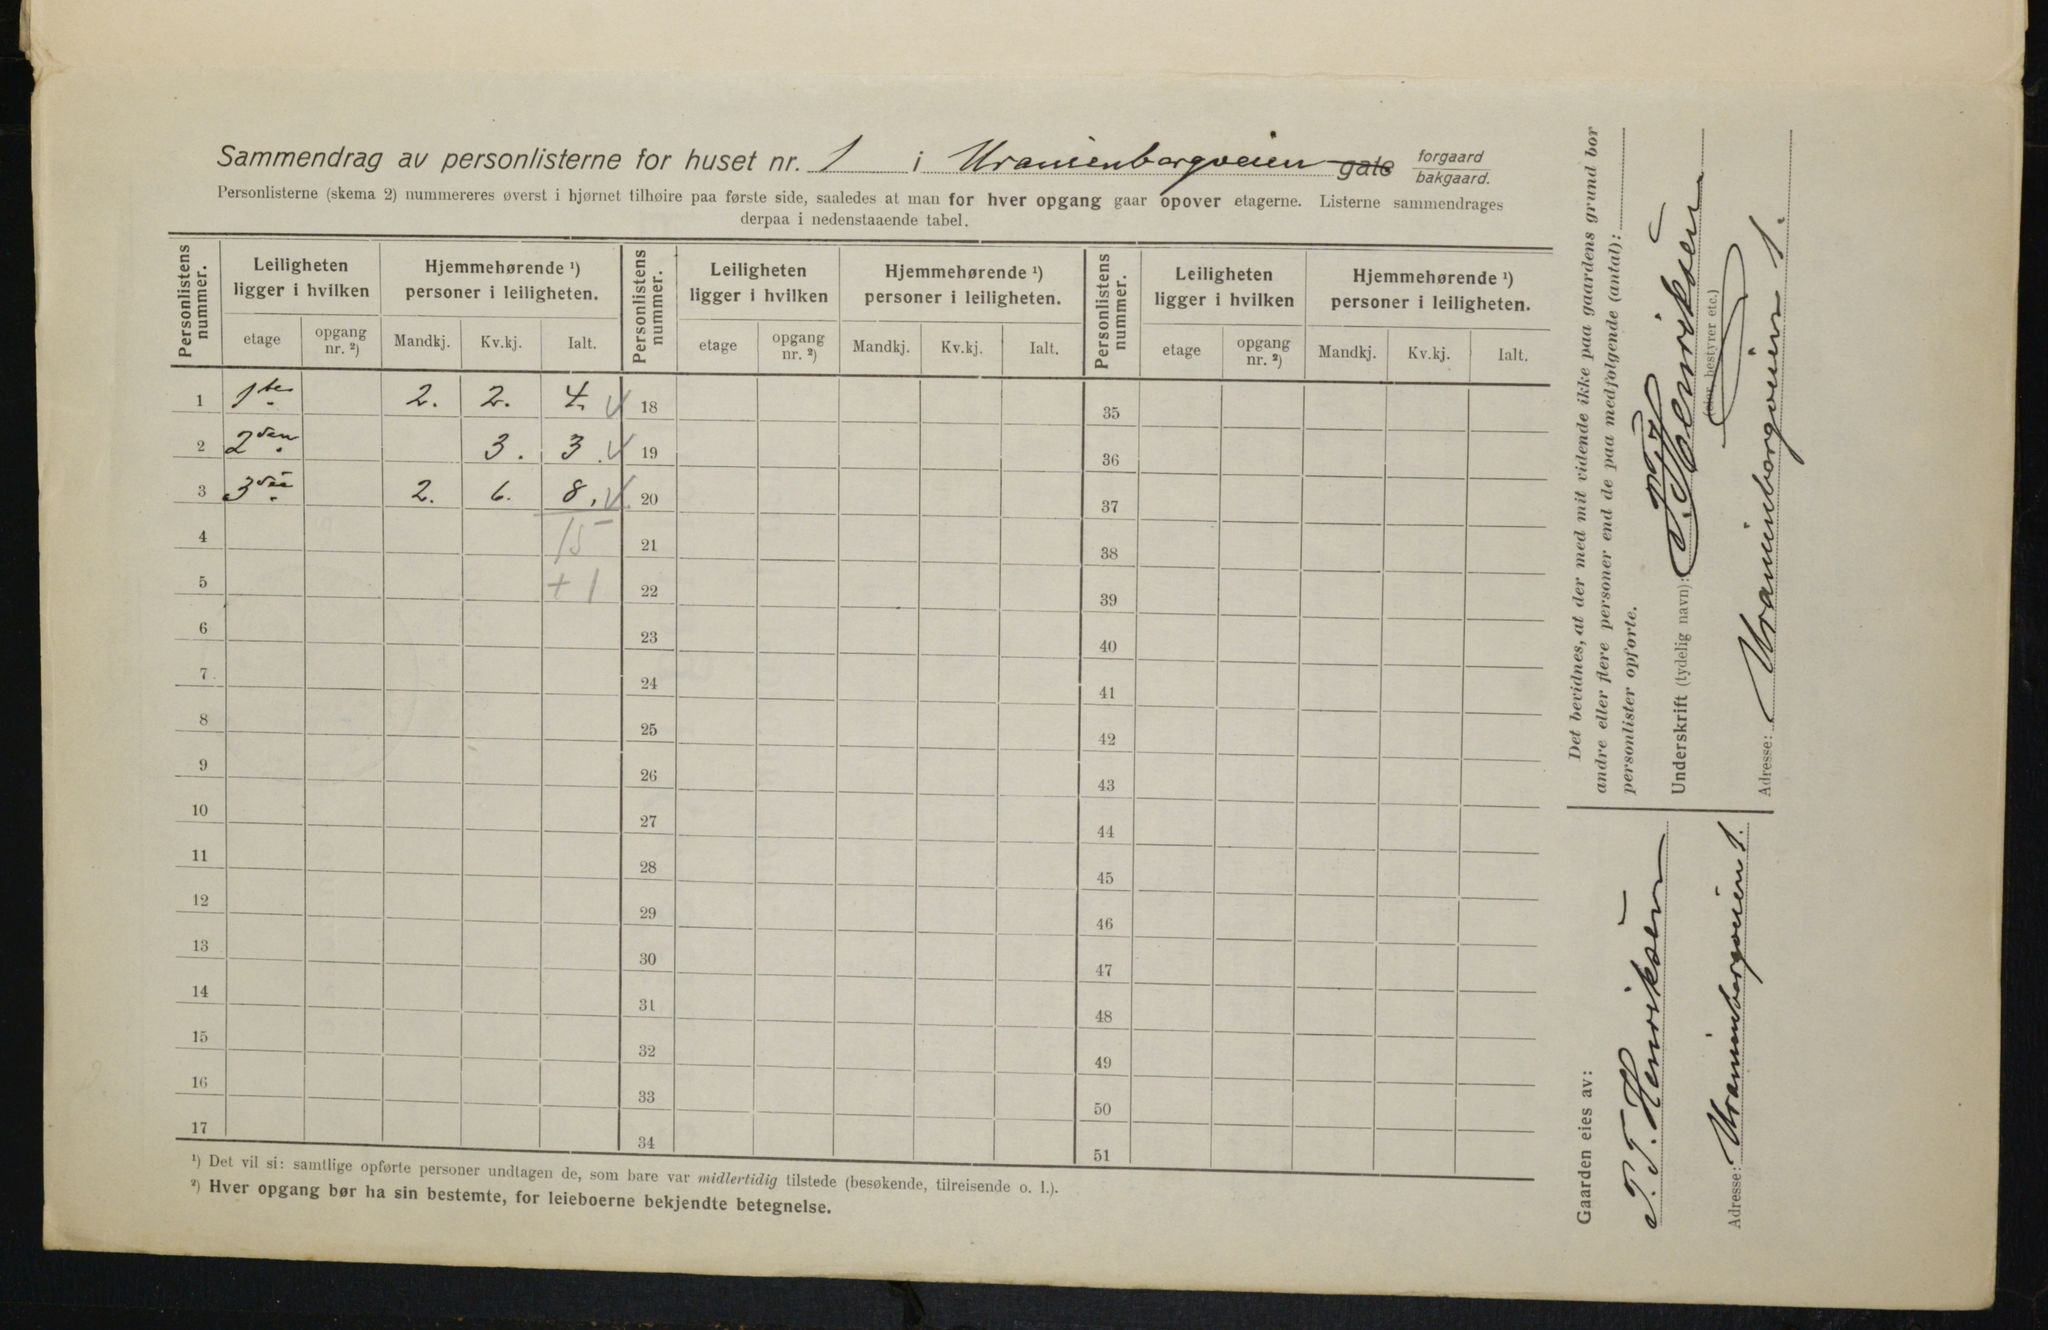 Sammendrag av personlisterne for huset nr. 1 i Uranienborgveien gate forgaard bakgaard.
Personlisterne (skema 2) nummereres øverst i hjørnet tilhøire paa første side, saaledes at man for hver opgang gaar opover etagerne. Listerne sammendrages
derpaa i nedenstaaende tabel.
Personlistens nummer. Leiligheten ligger i hvilken Hjemmehørende ¹) personer i leiligheten. Personlistens nummer. Leiligheten ligger i hvilken Hjemmehørende ¹) personer i leiligheten. Personlistens nummer. Leiligheten ligger i hvilken Hjemmehørende ¹) personer i leiligheten.
etage opgang nr. ²) Mandkj. Kv.kj. Ialt. etage opgang nr. ²) Mandkj. Kv.kj. Ialt. etage opgang nr. ²) Mandkj. Kv.kj. Ialt.
1 1ste 2. 2. 4. 18 35
2 2den 3. 3. 19 36
3 3die 2. 6. 8. 20 37
4 15 21 38
5 +1 22 39
6 23 40
7 24 41
8 25 42
9 26 43
10 27 44
11 28 45
12 29 46
13 30 47
14 31 48
15 32 49
16 33 50
17 34 51
¹) Det vil si: samtlige opførte personer undtagen de, som bare var midlertidig tilstede (besøkende, tilreisende o. l.).
²) Hver opgang bør ha sin bestemte, for leieboerne bekjendte betegnelse.
Det bevidnes, at der med mit vidende ikke paa gaardens grund bor
andre eller flere personer end de paa medfølgende (antal):
personlister opførte.
Underskrift (tydelig navn): T. Henriksen
(eier, bestyrer etc.)
Adresse: Uranienborgveien 1.
Gaarden eies av:
T. T. Henriksen
Adresse: Uranienborgveien 1.